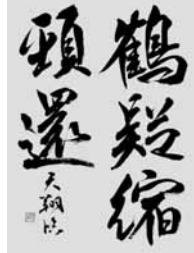 鶴疑縮
頸還
天翔臨